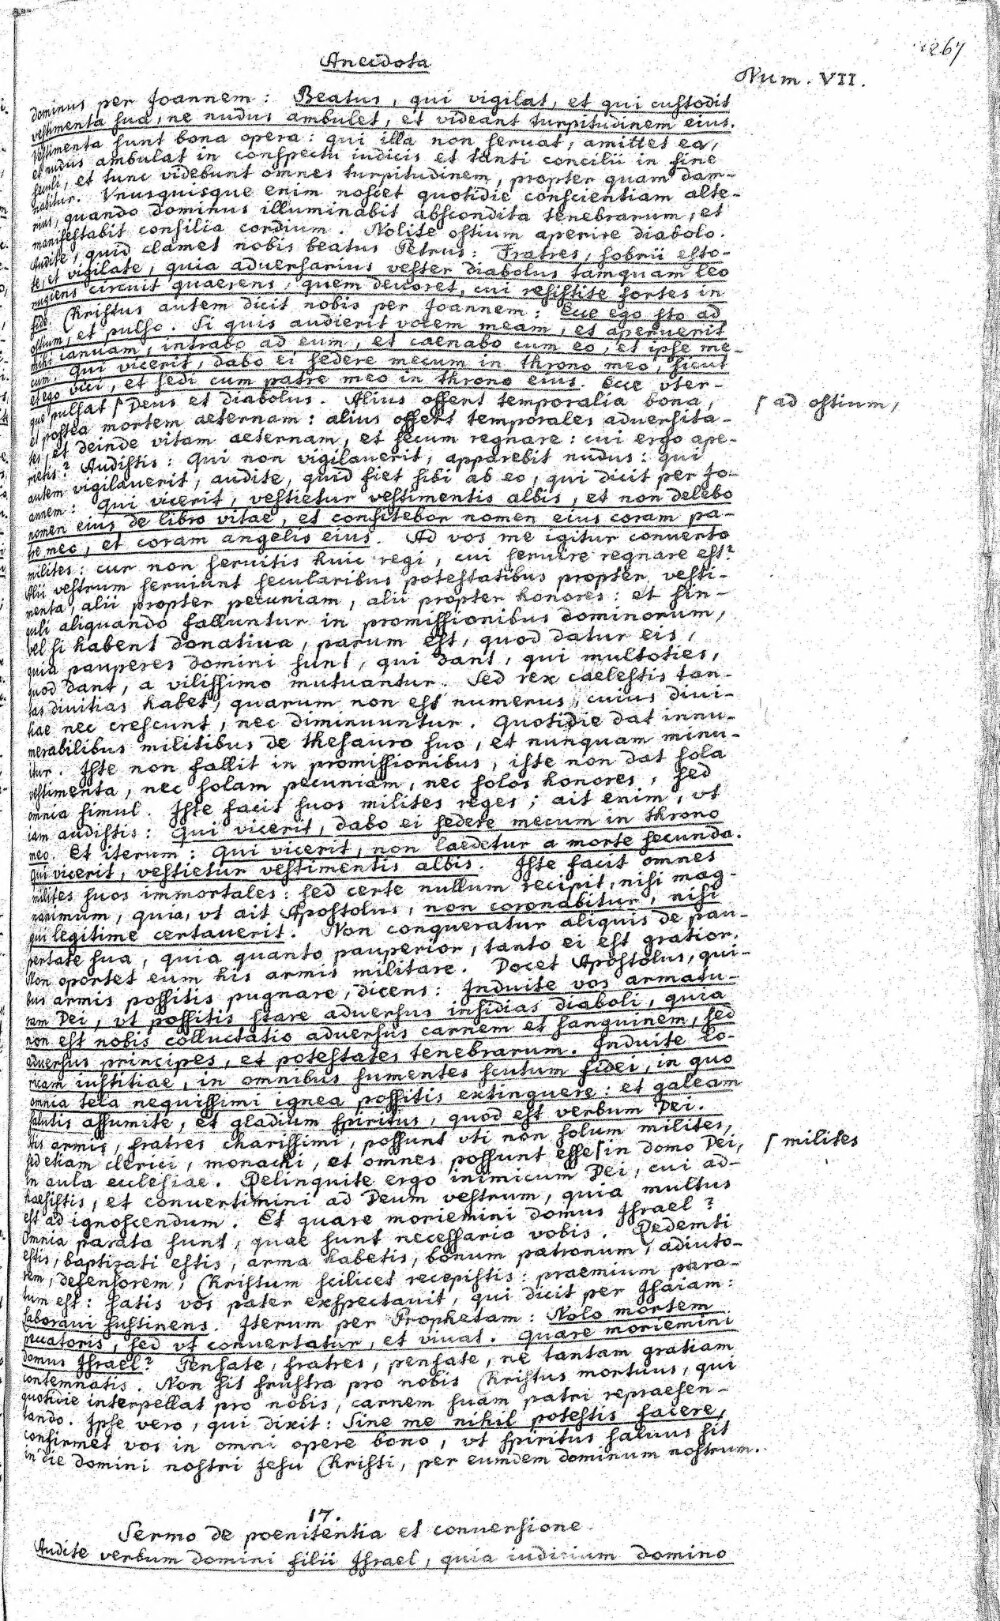 1267
Anecdota
Num. VII.
dominus per Joannem: Beatus, qui vigilat, et qui custodit
vestimenta sua, ne nudus ambulet, et videant turpitudinem eius.
Vestimenta sunt bona opera: qui illa non seruat, amittet ea,
et nudus ambulat in conspectu iudicis et tanti concilii in fine
seculi, et tunc videbunt omnes turpitudinem, propter quam dam-
nabitur. Vnusquisque enim noscet quotidie conscientiam alte-
rius, quando dominus illuminabit abscondita tenebrarum, et
manifestabit consilia cordium. Nolite ostium aperire diabolo.
Audite, quid clamet nobis beatus Petrus: Fratres, sobrii esto-
te, et vigilate, quia aduersarius vester diabolus tamquam leo
rugiens circuit quaerens, quem deuoret, cui resistite fortes in
fide. Christus autem dicit nobis per Joannem: Ecce ego sto ad
ostium, et pulso. Si quis audierit vocem meam, et aperuerit
mihi ianuam, intrabo ad eum, et caenabo cum eo, et ipse me-
cum. Qui vicerit, dabo ei sedere mecum in throno meo, sicut
et ego vici, et sedi cum patre meo in throno eius. Ecce vter-
que pulsat ⌠ Deus et diabolus. Alius offert temporalia bona,
⌠ ad ostium,
et postea mortem aeternam: alius offert temporales aduersita-
tes, et deinde vitam aeternam, et secum regnare: cui ergo ape-
rietis? Audistis: Qui non vigilauerit, apparebit nudus: qui
autem vigilauerit, audite, quid fiet sibi ab eo, qui dicit per Jo-
annem: Qui vicerit, vestietur vestimentis albis, et non delebo
nomen eius de libro vitae, et confitebor nomen eius coram pa-
tre meo, et coram angelis eius. Ad vos me igitur conuerto
milites: cur non seruitis huic regi, cui seruire regnare est?
Alii vestrum seruiunt secularibus potestatibus propter vesti-
menta, alii propter pecuniam, alii propter honores: et sin-
guli aliquando falluntur in promissionibus dominorum,
vel si habent donatiua, parum est, quod datur eis,
quia pauperes domini sunt, qui dant, qui multoties,
quod dant, a vilissimo mutuantur. Sed rex caelestis tan-
tas diuitias habet, quarum non est numerus, cuius diui-
tiae nec crescunt, nec diminuuntur. Quotidie dat innu-
merabilibus militibus de thesauro suo, et nunquam minu-
itur. Iste non fallit in promissionibus, iste non dat sola
vestimenta, nec solam pecuniam, nec solos honores, sed
omnia simul. Iste facit suos milites reges; ait enim, vt
iam audistis: Qui vicerit, dabo ei sedere mecum in throno
meo. Et iterum: Qui vicerit, non laedetur a morte secunda.
Qui vicerit, vestietur vestimentis albis. Iste facit omnes
milites suos immortales: sed certe nullum recipit, nisi mag-
nanimum, quia, vt ait Apostolus, non coronabitur, nisi
qui legitime certauerit. Non conqueratur aliquis de pau-
pertate sua, quia quanto pauperior, tanto ei est gratior.
Non oportet eum his armis militare. Docet Apostolus, qui-
bus armis possitis pugnare, dicens: Induite vos armatu-
ram Dei, vt possitis stare aduersus insidias diaboli, quia
non est nobis colluctatio aduersus carnem et sanguinem, sed
aduersus principes, et potestates tenebrarum. Induite lo-
ricam iustitiae, in omnibus sumentes scutum fidei, in quo
omnia tela nequissimi ignea possitis extinguere: et galeam
salutis assumite, et gladium spiritus, quod est verbum Dei.
His armis, fratres charissimi, possunt vti non solum milites,
sed etiam clerici, monachi, et omnes possunt esse ⌠ in domo Dei,
⌠ milites
in aula ecclesiae. Relinquite ergo inimicum Dei, cui ad-
haesistis, et conuertimini ad Deum vestrum, quia multus
est ad ignoscendum. Et quare moriemini domus Israel?
Omnia parata sunt, quae sunt necessaria vobis. Redemti
estis, baptizati estis, arma habetis, bonum patronum, adiuto-
rem, defensorem, Christum scilicet recepistis: praemium para-
tum est: satis vos pater exspectauit, qui dicit per Isaiam:
Laboraui sustinens. Iterum per Prophetam: Nolo mortem
peccatoris, sed vt conuertatur, et viuat. Quare moriemini
domus Israel? Pensate, fratres, pensate, ne tantam gratiam
contemnatis. Non sit frustra pro nobis Christus mortuus, qui
quotidie interpellat pro nobis, carnem suam patri repraesen-
tando. Ipse vero, qui dixit: Sine me nihil potestis facere,
confirmet vos in omni opere bono, vt spiritus saluus sit
in die domini nostri Jesu Christi, per eumdem dominum nostrum.
17.
Sermo de poenitentia et conuersione.
Audite verbum domini filii Israel, quia iudicium domino